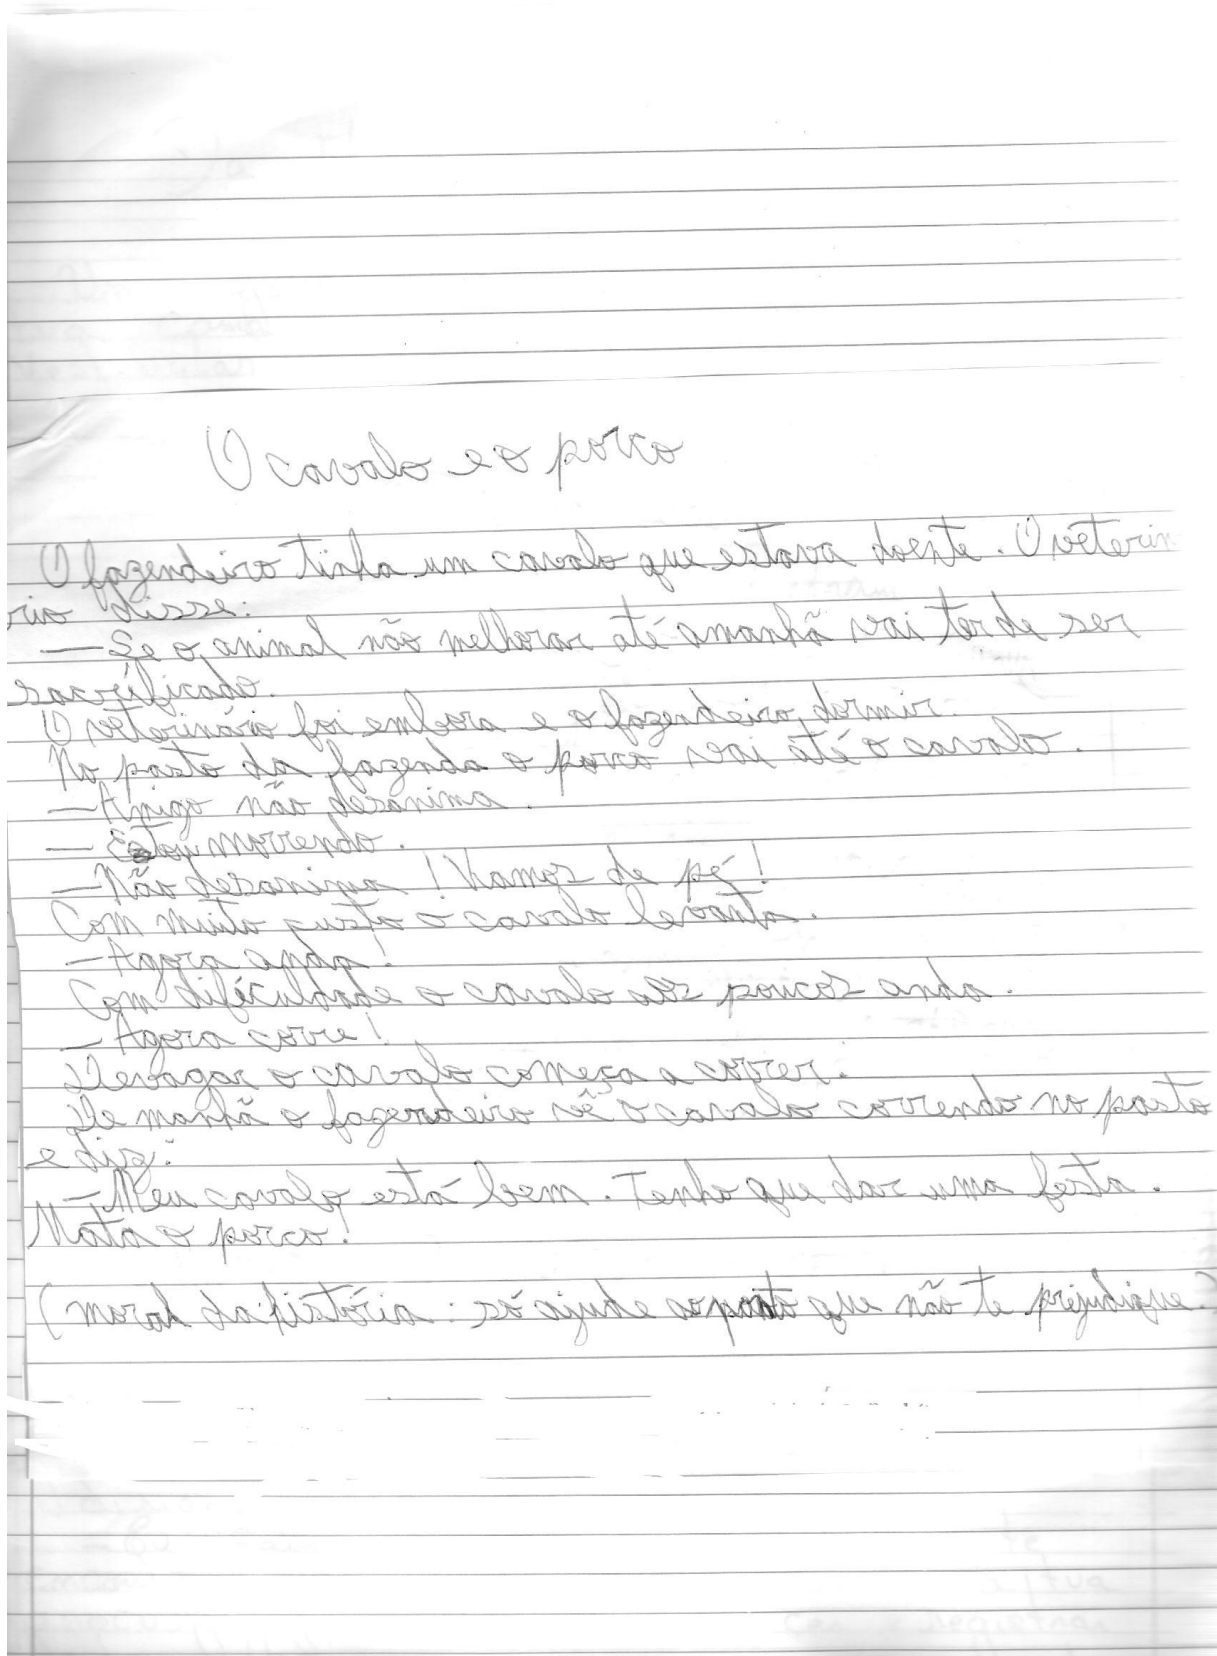 O cavalo e o porco
O fazendeiro tinha um cavalo que estava doente. O veterin
rio disse:
— Se o animal não melhorar até amanhã vai ter de ser
sacrificado.
O veterinário foi embora e o fazendeiro, dormir.
No pasto da fazenda o porco vai até o cavalo.
— Amigo não desanima.
— Estou morrendo.
— Não desanima! Vamos de pé!
Com muito custo o cavalo levanta.
— Agora anda!
Com dificuldade o cavalo aos poucos anda.
— Agora corre!
Devagar o cavalo começa a correr.
De manhã o fazendeiro vê o cavalo correndo no pasto
e diz:
— Meu cavalo está bem. Tenho que dar uma festa.
Mata o porco!
(moral da história: só ajude a ponto que não te prejudique.)